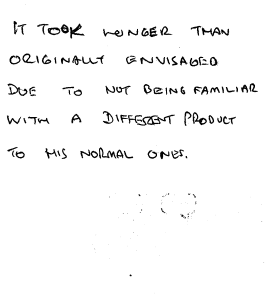 IT TOOK LONGER THAN
ORIGINALLY ENVISAGED
DUE TO NOT BEING FAMILIAR
WITH A DIFFERENT PRODUCT
TO HIS NORMAL ONES.